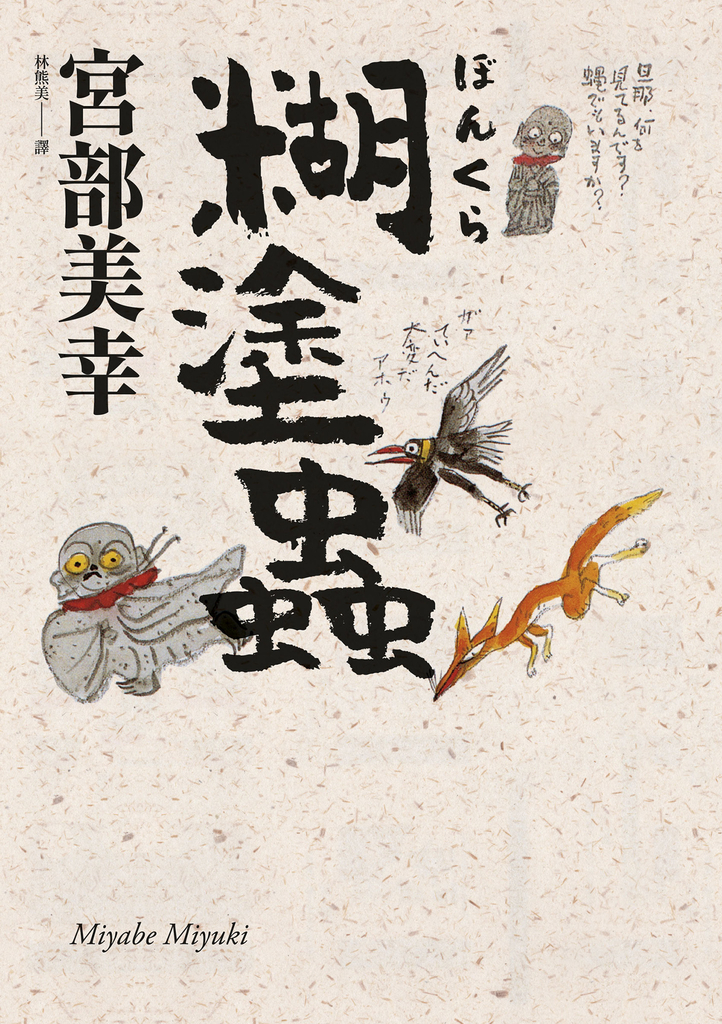 旦那、何を
見てるんです?
蝿でもいますか?
ぼんくら
糊塗蟲
宮部美幸
林熊美——譯
ガァ
ていへんだ
大変だ
アホウ
Miyabe Miyuki